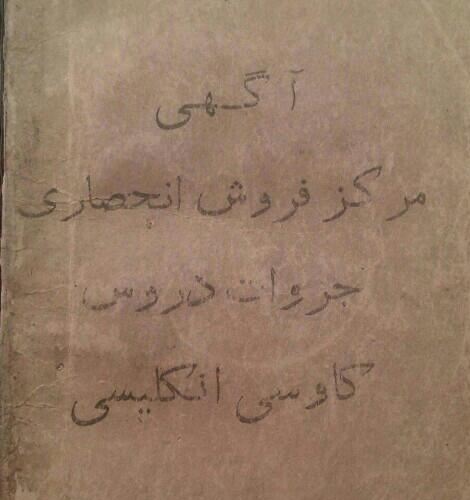 آگهی
مرکز فروش انحصاری
جزوات دروس
کاوسی انگلیسی